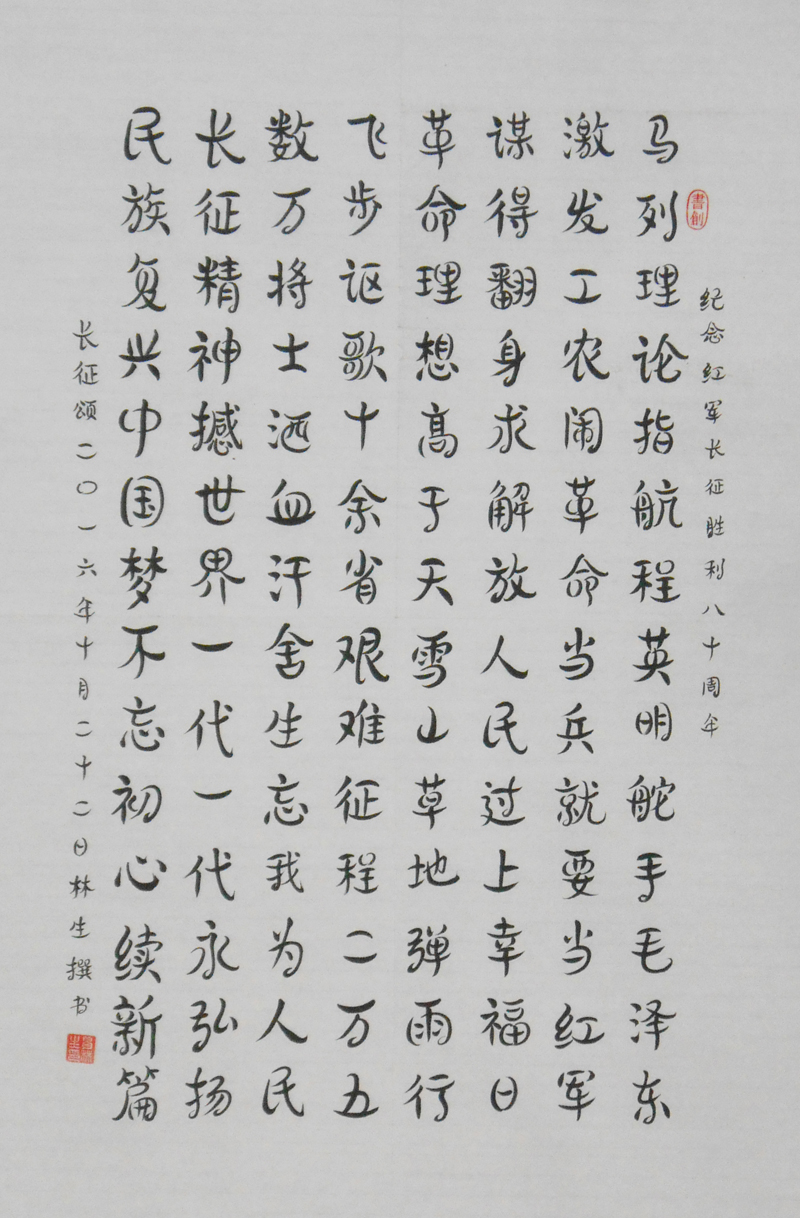 書創
纪念红军长征胜利八十周年
马列理论指航程英明舵手毛泽东
激发工农闹革命当兵就要当红军
谋得翻身求解放人民过上幸福日
革命理想高于天雪山草地弹雨行
飞步讴歌十余省艰难征程二万五
数万将士洒血汗舍生忘我为人民
长征精神撼世界一代一代永弘扬
民族复兴中国梦不忘初心续新篇
长征颂二〇一六年十月二十二日林生撰书